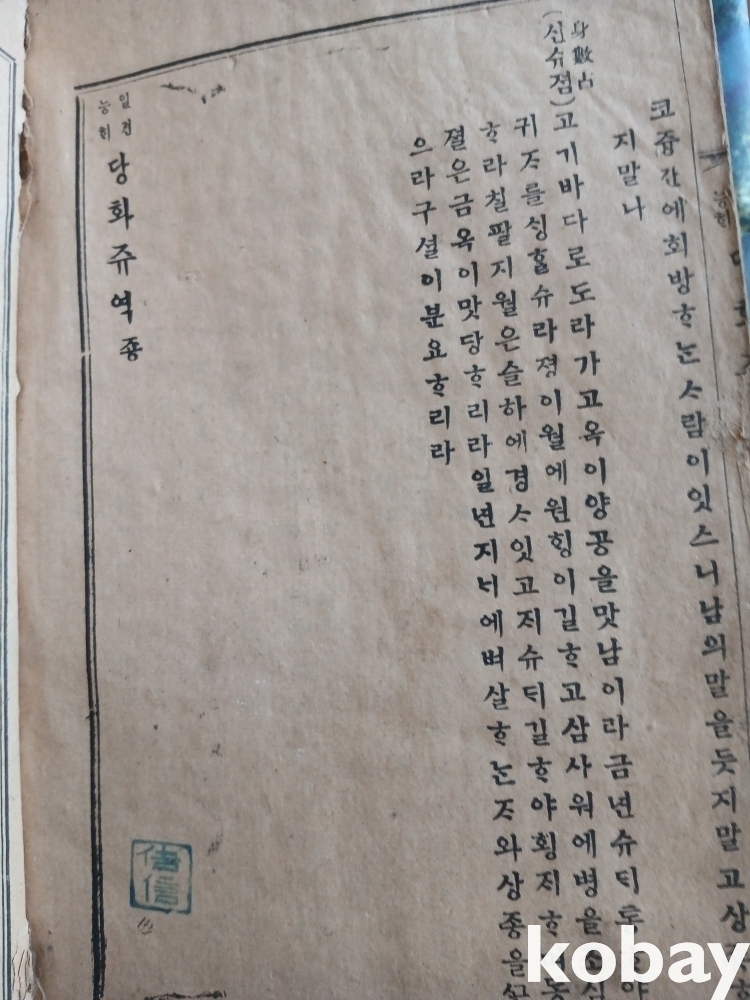 코쥼간에회방ᄒᆞᄂᆞᆫᄉᆞ람이잇스니남의말을듯지말고상
지말나
身數占
(신슈졈)고기바다로도라가고옥이양공을맛남이라금년슈ᄐᆡ
귀ᄌᆞ를ᄉᆡᆼᄒᆞᆯ슈라졍이월에원ᄒᆡᆼ이길ᄒᆞ고삼사워에병을조심
ᄒᆞ라칠팔지월은슬하에경ᄉᆞ잇고ᄌᆡ슈ᄃᆡ길ᄒᆞ야횡ᄌᆡᄒᆞ
졀은금옥이맛당ᄒᆞ리라일년지ᄂᆡ에벼살ᄒᆞᄂᆞᆫᄌᆞ와상종을
으라구셜이분요ᄒᆞ리라
일견
능ᄒᆡ
당화쥬역죵
kobay